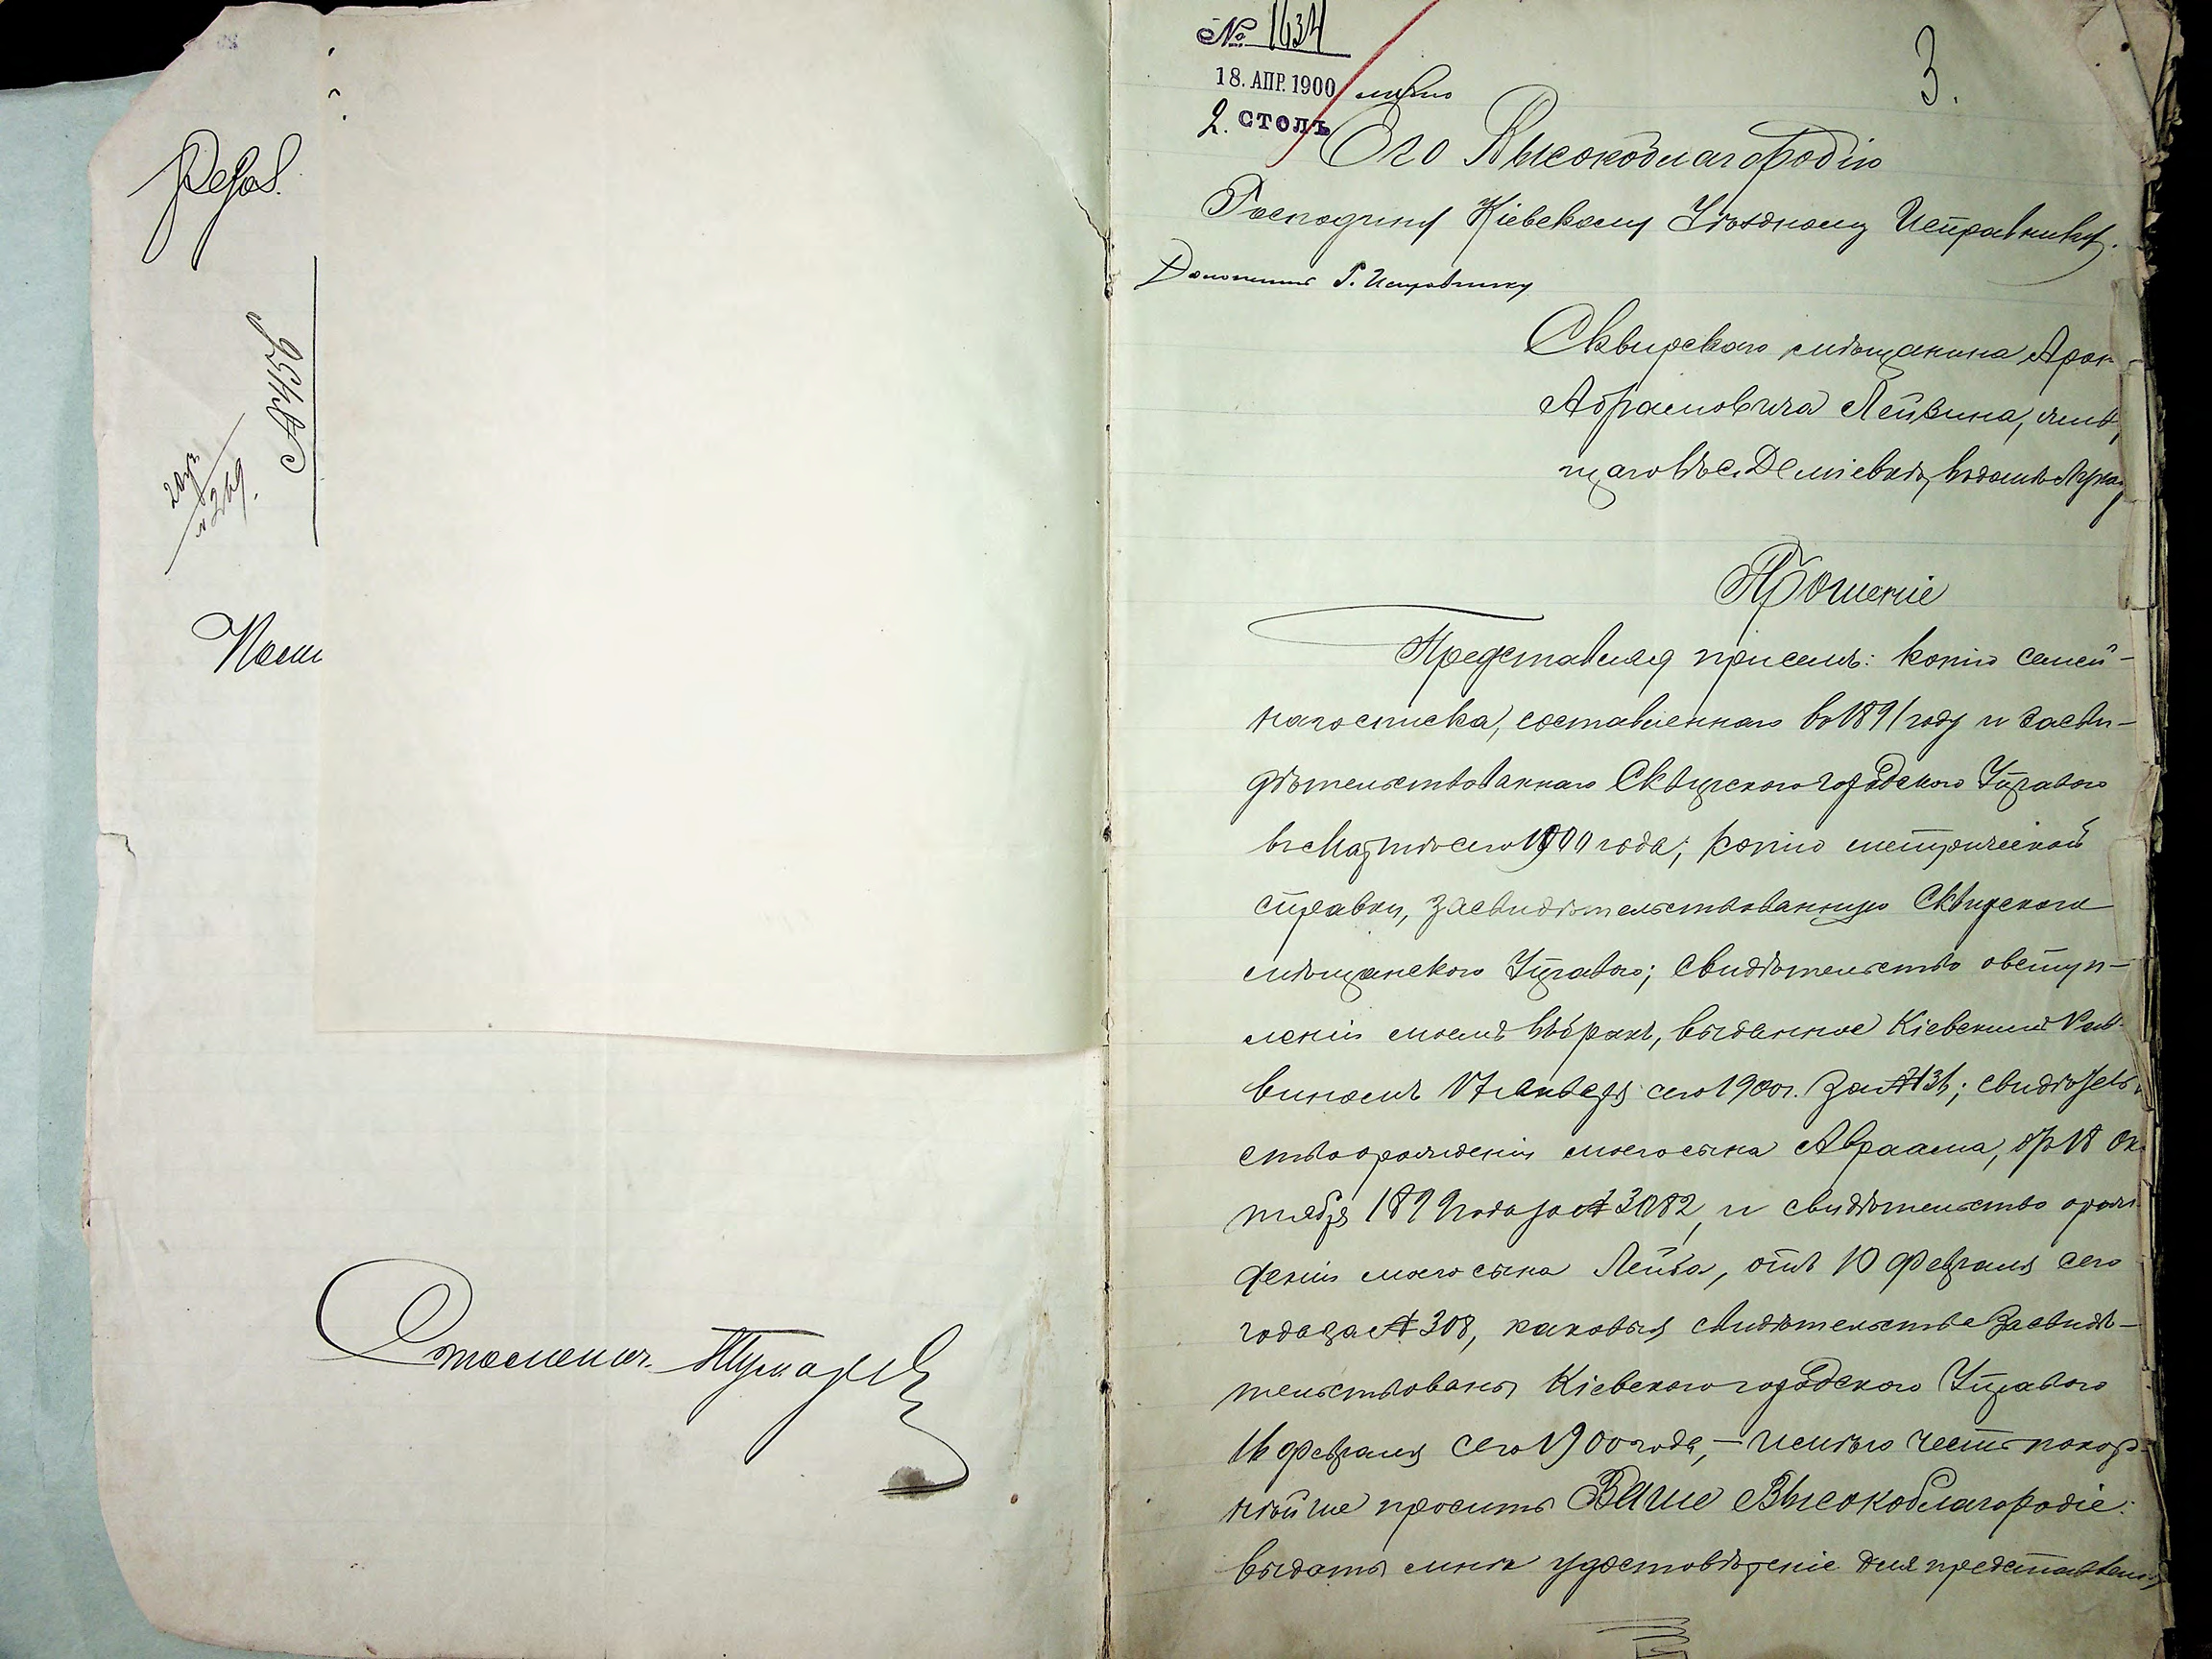 № 1634
18. АПР. 1900
2. СТОЛЪ
3.
Его Высокоблагородію
Господину Кіевскому Уѣздному Исправнику.
Г. Исправнику
Сквирскаго мѣщанина Арон
Абрамовича Лейзина, живу
щаго въ с. Деміевкѣ, въ домѣ
Прошеніе
Представляя при семъ: копію семей-
наго списка, составленнаго въ 1891 году и засви-
дѣтельствованнаго Сквирскою городскою Управою
въ Мартѣ сего 1900 года; копію метрической
справки, засвидѣтельствованную Сквирскою
мѣщанскою Управою; свидѣтельство о вступ-
леніи моемъ въ бракъ, выданное Кіевскимъ Рав-
виномъ 17 Января сего 1900 г. за № 136; свидѣтель
ство о рожденіи моего сына Авраама, отъ 18 Ок
тября 1899 года за № 3082, и свидѣтельство о рож
деніи моего сына Лейба, отъ 10 Февраля сего
года за № 308, каковыя свидѣтельства засвидѣ-
тельствованы Кіевскою городскою Управою
16 Февраля сего 1900 года, — имѣю честь покор-
нѣйше просить Ваше Высокоблагородіе:
выдать мнѣ удостовѣреніе для представлен